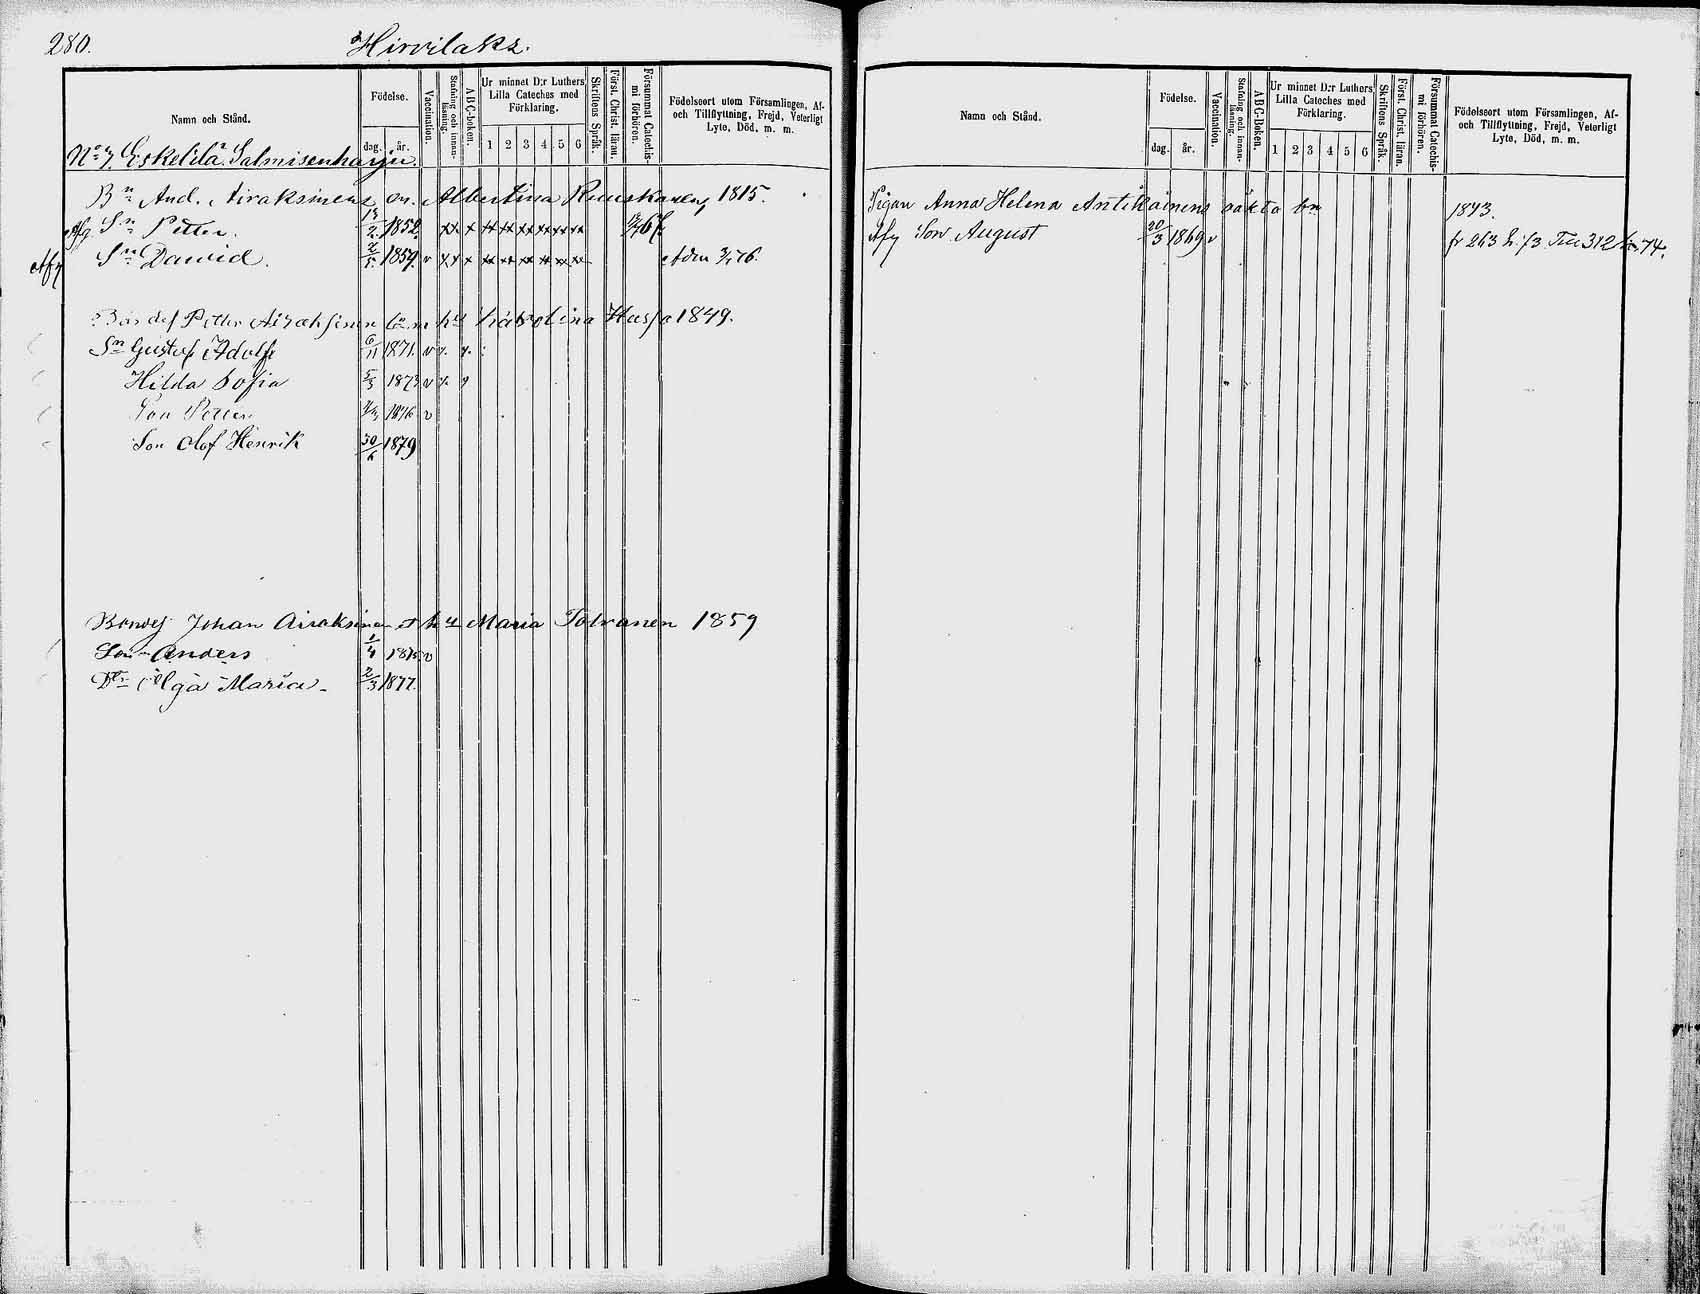 280.
Hirvilaks.
Namn och Stånd.
Födelse.
dag.
år.
Vaccination.
Stafning och innan-
läsning.
ABC-boken.
Ur minnet D:r Luthers
Lilla Cateches med
Förklaring.
1 2 3 4 5 6
Skriftens Språk.
Först. Christ. läran.
Försummat Catechis-
mi förhören.
Födelseort utom Församlingen, Af-
och Tillflyttning, Frejd, Veterligt
Lyte, Död, m. m.
No 7 Eskelilä Salmisenharju
Bn And. Airaksinens o. Albertina Ruuskanens 1815.
Afg. Sn Petter. 1852.
Afg Sn Dawid. 1859. v
Petter Airaksinen hu Karolina Husso 1849.
Sn Gustaf Adolf 6/11 1871. v
Hilda Sofia 5/3 1873 v
Son Petter 1876 v
Son Olof Henrik 30/6 1879
Johan Airaksinen hu Maria Tolvanen 1859
Son Anders 1/4 1875 v
Dtr Olga Maria 2/3 1877.
Namn och Stånd.
Födelse.
dag.
år.
Vaccination.
Stafning och innan-
läsning.
ABC-Boken.
Ur minnet D:r Luthers
Lilla Cateches med
Förklaring.
1 2 3 4 5 6
Skriftens Språk.
Först. Christ. läran.
Försummat Catechis-
mi förhören.
Födelseort utom Församlingen, Af-
och Tillflyttning, Frejd, Veterligt
Lyte, Död, m. m.
Pigan Anna Helena Antikainens oäkta bn 1843.
Afg Son August 20/3 1869 v fr 263 h. 73 Till 312 74.